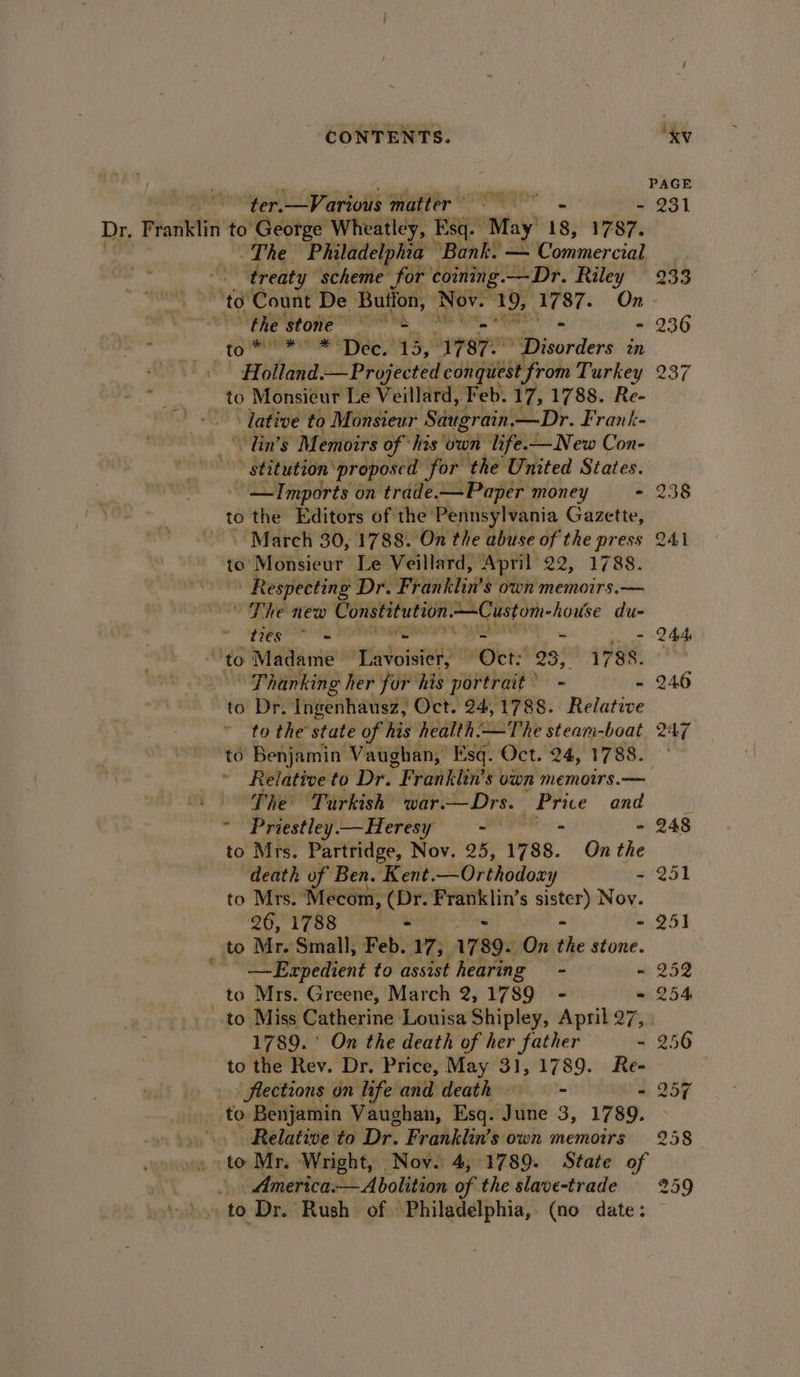 CONTENTS. xv
PAGE
ter.—Various matter - - 231
Dr. Franklin to George Wheatley, Esq. May 18, 1787.
The Philadelphia Bank. — Commercial
treaty scheme for coining.—Dr. Riley 233
to Count De Buffon, Nov. 19, 1787. On
the stone - - - - 236
to * * * Dec. 15, 1787. Disorders in
Holland.—Projected conquest from Turkey 237
to Monsieur Le Veillard, Feb. 17, 1788. Re-
lative to Monsieur Saugrain.—Dr. Frank-
lin's Memoirs of his own life.—New Con-
stitution proposed for the United States.
—Imports on trade.—Paper money - 238
to the Editors of the Pennsylvania Gazette,
March 30, 1788. On the abuse of the press 241
to Monsieur Le Veillard, April 22, 1788.
Respecting Dr. Franklin's own memoirs.—
The new Constitution.—Custom-house du-
ties - - - - - 244
to Madame Lavoisier, Oct. 23, 1788.
Thanking her for his portrait - - 246
to Dr. Ingenhausz, Oct. 24, 1788. Relative
to the state of his health.—The steam-boat 247
to Benjamin Vaughan, Esq. Oct. 24, 1788.
Relative to Dr. Franklin's own memoirs.—
The Turkish war.—Drs. Price and
Priestley.—Heresy - - - 248
to Mrs. Partridge, Nov. 25, 1788. On the
death of Ben. Kent.—Orthodoxy - 251
to Mrs. Mecom, (Dr. Franklin's sister) Nov.
26, 1788 - - - - 251
to Mr. Small, Feb. 17, 1789. On the stone.
—Expedient to assist hearing - - 252
to Mrs. Greene, March 2, 1789 - - 254
to Miss Catherine Louisa Shipley, April 27,
1789. On the death of her father - 256
to the Rev. Dr. Price, May 31, 1789. Re-
flections on life and death - - 257
to Benjamin Vaughan, Esq. June 3, 1789.
Relative to Dr. Franklin's own memoirs 258
to Mr. Wright, Nov. 4, 1789. State of
America.—Abolition of the slave-trade 259
to Dr. Rush of Philadelphia, (no date: